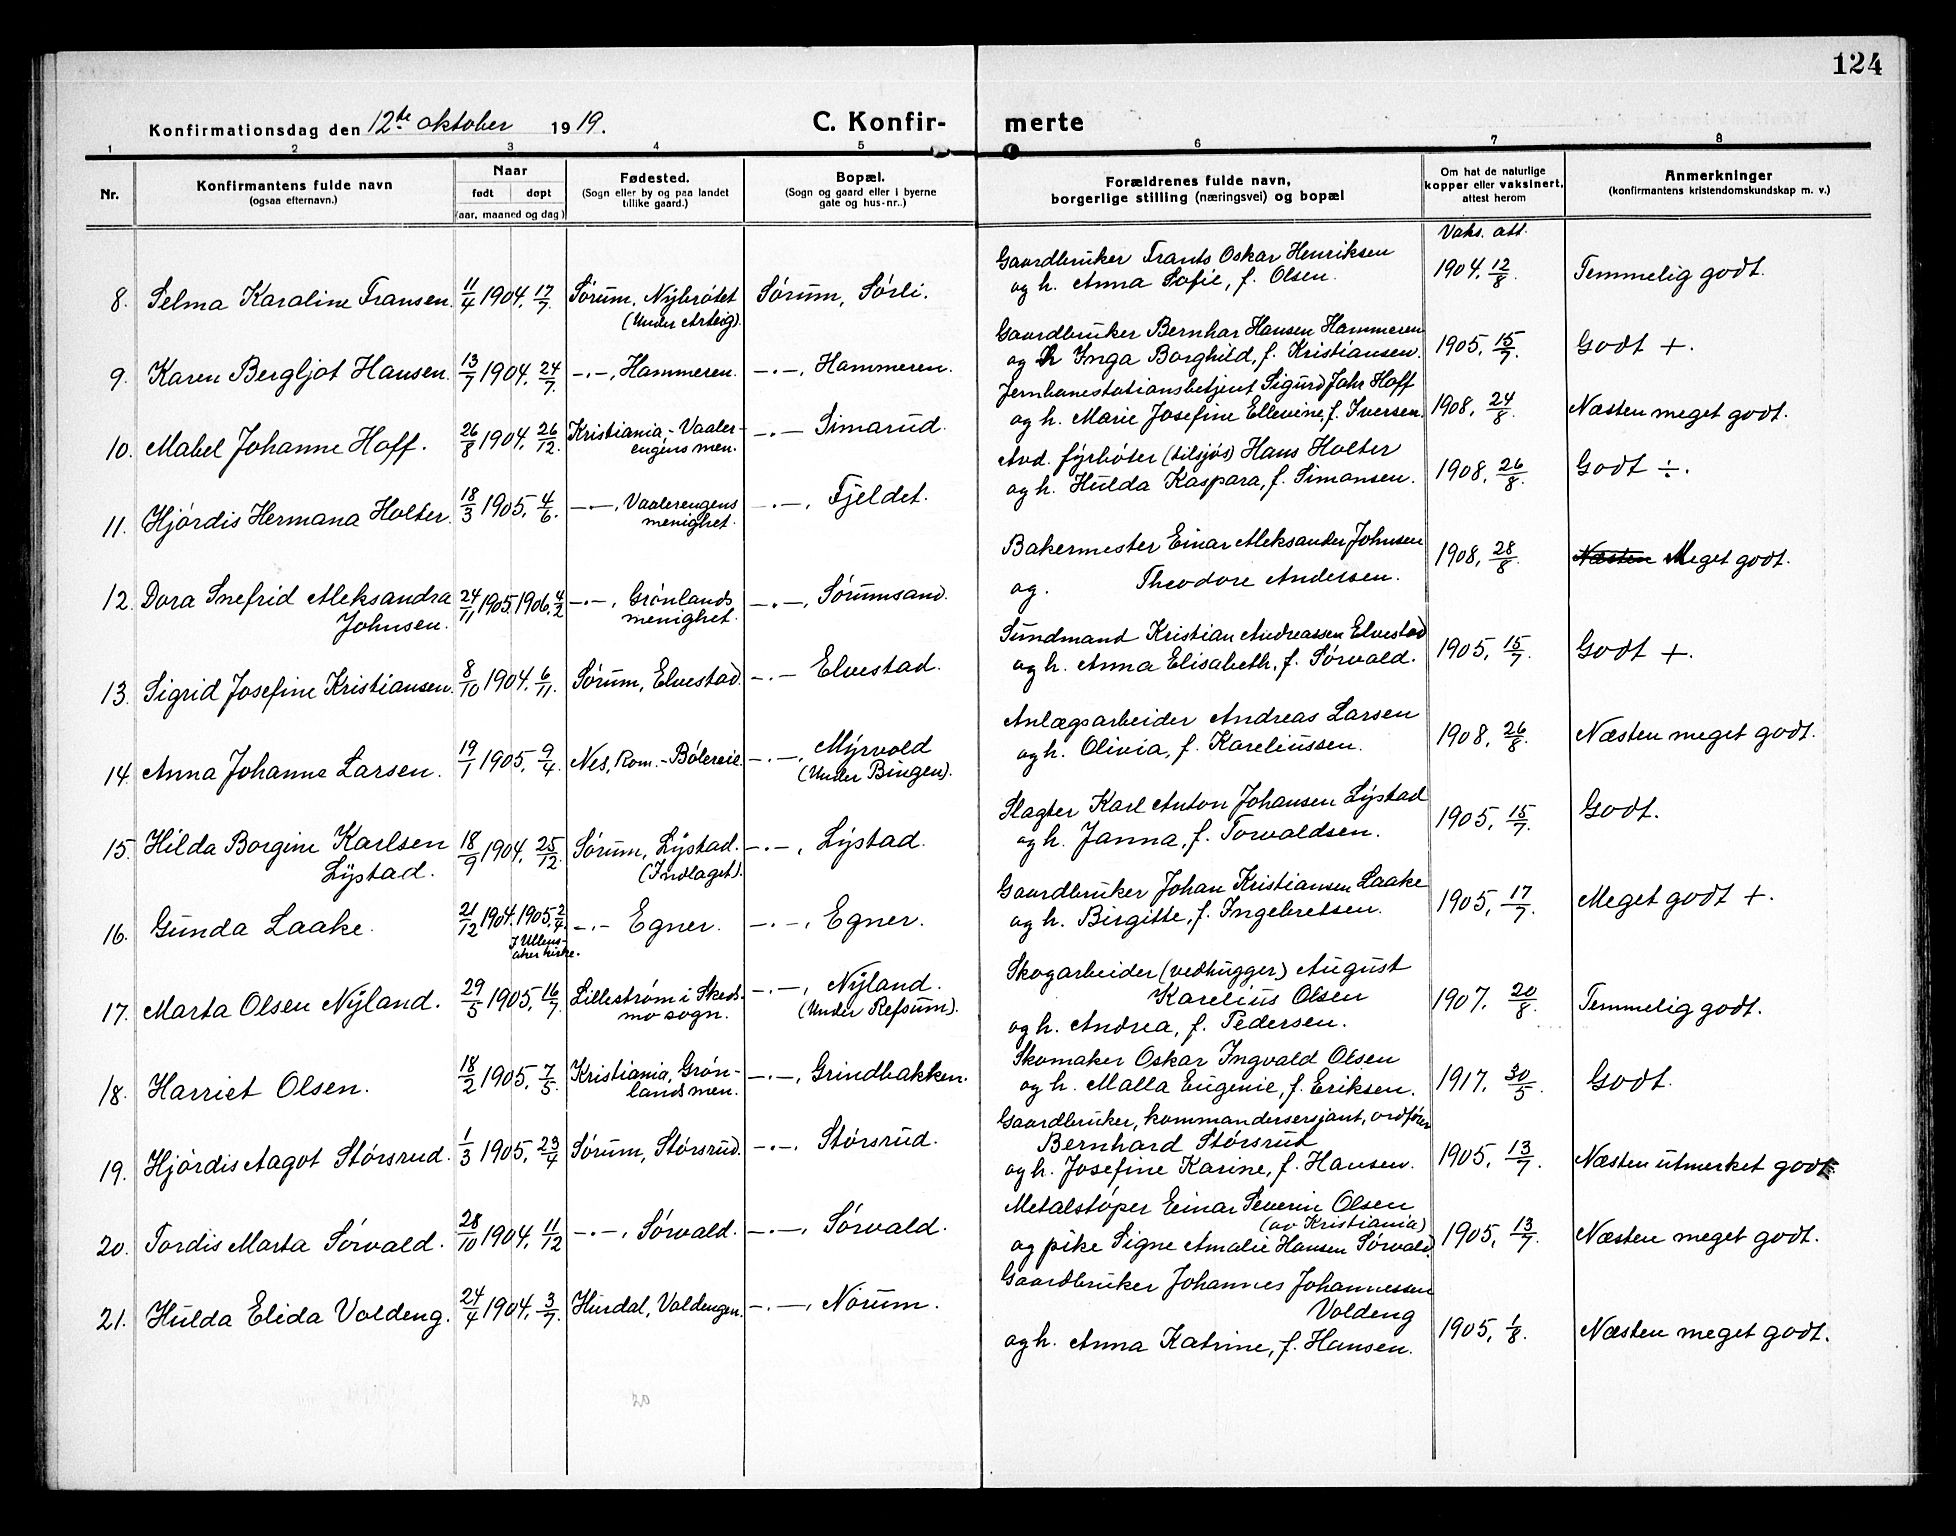 124
Konfirmationsdag den 12te oktober 1919. C. Konfirmerte
1 2 3 4 5 6 7 8
Nr.
Konfirmantens fulde navn
(ogsaa efternavn.)
Naar
født døpt
(aar, maaned og dag)
Fødested.
(Sogn eller by og paa landet
tillike gaard.)
Bopæl.
(Sogn og gaard eller i byerne
gate og hus-nr.)
Forældrenes fulde navn,
borgerlige stilling (næringsvei) og bopæl
Om hat de naturlige
kopper eller vaksinert,
attest herom
Anmerkninger
(konfirmantens kristendomskundskap m. v.)
Vaks. att.
8. Selma Karoline Fransen. 11/4 1904. 17/7. Sørum, Nybrøtet
(Under Arteig).
Sørum, Sørli.
Gaardbruker Frants Oskar Henriksen
og h. Anna Sofie, f. Olsen.
1904. 12/8. Temmelig godt.
9. Karen Bergljot Hansen. 13/7 1904. 24/7. -.-, Hammeren. -.-, Hammeren.
Gaardbruker Bernhar Hansen Hammeren
og h Inga Borghild, f. Kristiansen.
1905. 15/7. Godt +.
10. Mabel Johanne Hoff. 26/8 1904. 26/12. Kristiania, - Vaaler-
engens men.
-.- Simarud.
Jernbanestationsbetjent Sigurd Jahr Hoff
og h. Marie Josefine Ellevine, f. Iversen.
1908. 24/8. Næsten meget godt.
11. Hjördis Hermana Holter. 18/3 1905. 4/6. -.-, Vaalerengens
menighet.
-.-, Fjeldet.
Avd. fyrbøter (tilsjös) Hans Holter
og h. Hulda Kaspara, f. Simansen.
1908. 26/8. Godt ÷.
12. Dora Snefrid Aleksandra
Johnsen.
24/11 1905. 1906. 4/2 -.-, Grønlands
menighet.
-.-, Sørumsand.
Bakermester Einar Aleksander Johnsen
og. Theodore Andersen.
1908. 28/8. Næsten Meget godt.
13. Sigrid Josefine Kristiansen. 8/10 1904. 6/11. Sørum, Elvestad. -.- Elvestad.
Sundmand Kristian Andreassen Elvestad
og h. Anna Elisabeth, f. Sørvald.
1905. 15/7. Godt +.
14. Anna Johanne Larsen. 19/1 1905. 9/4. Nes, Rom. - Bölereie -.-, Myrvold
(Under Bingen).
Anlægsarbeider Andreas Larsen
og h. Olivia, f. Kareliussen.
1908. 26/8. Næsten meget godt.
15. Hilda Borgine Karlsen
Lystad.
18/9 1904. 25/12. Sørum, Lystad.
(Indlaget).
-.-, Lystad.
Slagter Karl Anton Johansen Lystad
og h. Janna, f. Torvaldsen.
1905. 15/7. Godt.
16. Gunda Laake. 21/12 1904. 1905. 2/4.
I Ullens-
aker kirke.
-.- Egner. -.-, Egner.
Gaardbruker Johan Kristiansen Laake
og h. Birgitte, f. Ingebretsen.
1905. 17/7. Meget godt +.
17. Marta Olsen Nyland. 29/5 1905. 16/7. Lillestrøm i Skeds-
mo sogn.
-.-, Nyland.
(Under Refsum).
Skogarbeider (vedhugger) August
Karelius Olsen
og h. Andrea, f. Pedersen.
1907. 20/8. Temmelig godt.
18. Harriet Olsen. 18/2 1905. 7/5. Kristiania, Grøn-
lands men.
-.-, Grindbakken.
Skomaker Oskar Ingvald Olsen
og h. Malla Eugenie, f. Eriksen.
1917. 30/5. Godt.
19. Hjördis Aagot Störsrud. 1/3 1905. 23/4 Sørum, Störsrud. -.-, Störsrud.
Gaardbruker, kommandersersjant, ordfører
Bernhard Störsrud
og h. Josefine Karine, f. Hansen.
1905. 13/7. Næsten utmerket godt.
20. Tordis Marta Sörvald. 28/10 1904. 11/12 -.-, Sörvald. -.-, Sörvald.
Metalstöper Einar Severin Olsen
(av Kristiania)
og pike Signe Amalie Hansen Sörvald.
1905. 13/7. Næsten meget godt.
21. Hulda Elida Voldeng. 24/4 1904. 3/7. Hurdal, Voldengen. -.-, Norum.
Gaardbruker Johannes Johannessen
Voldeng
og h. Anna Katrine, f. Hansen.
1905. 1/8. Næsten meget godt.
20